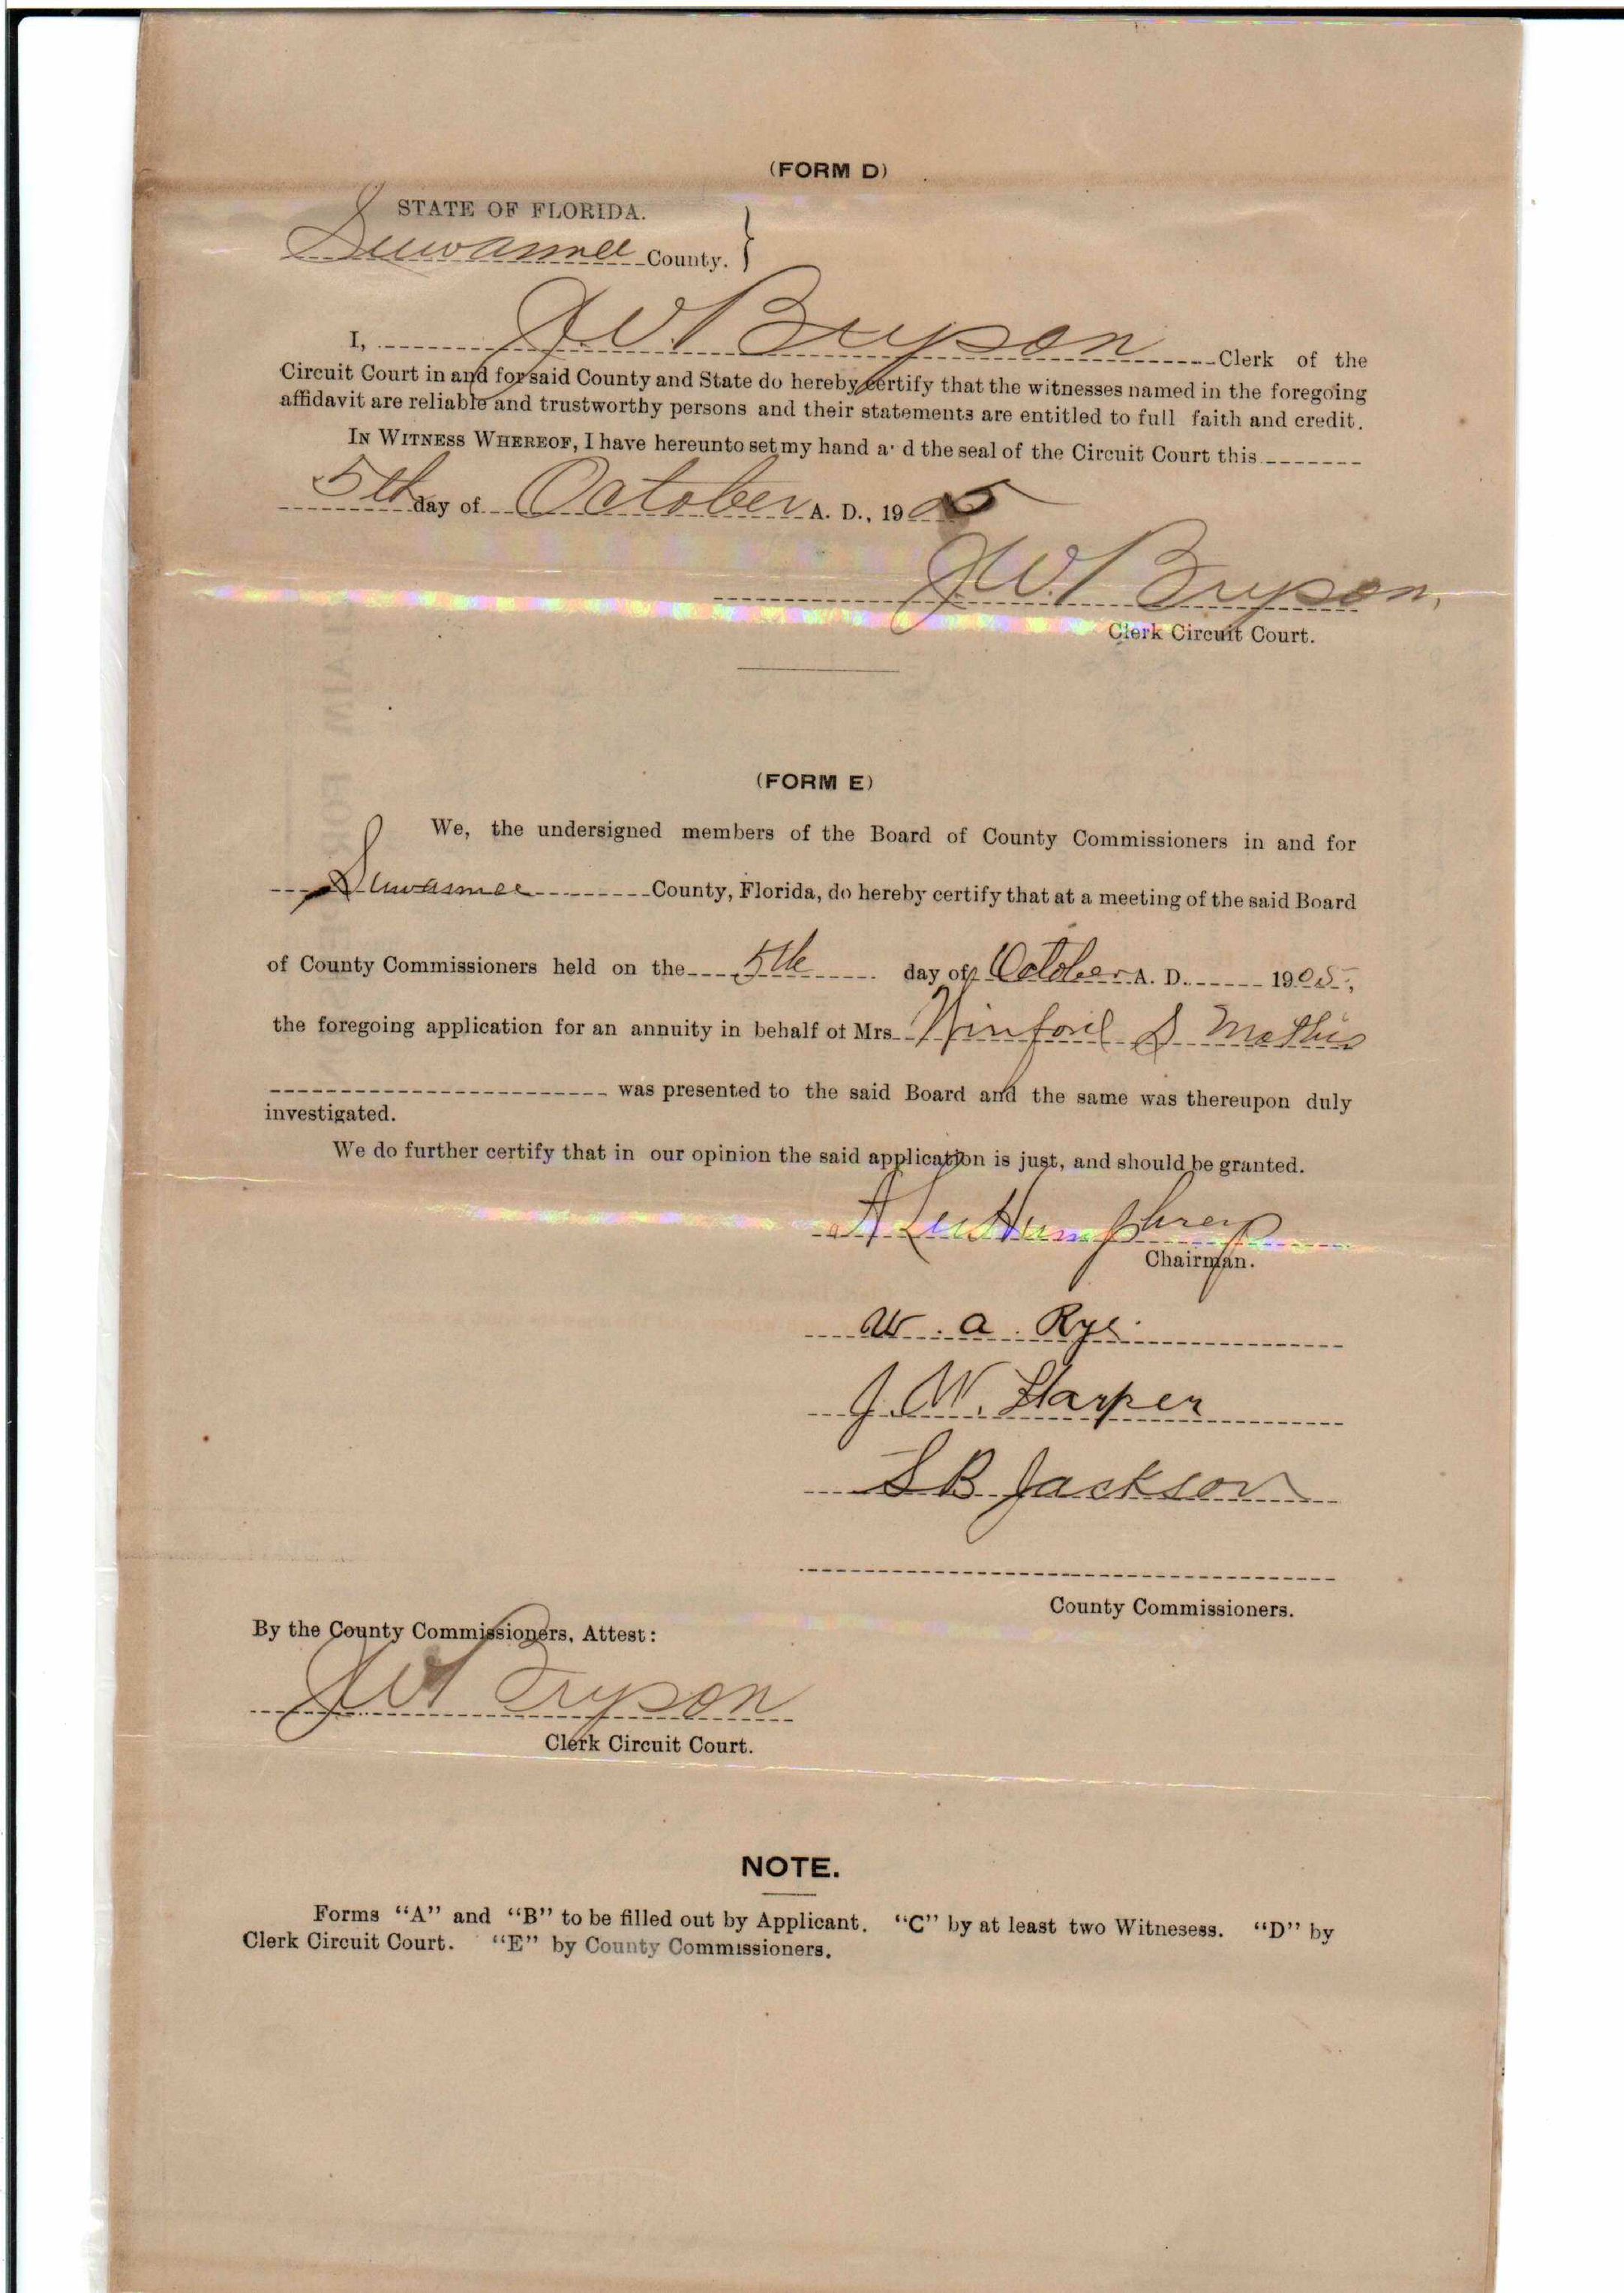 (FORM D)
STATE OF FLORIDA.
Suwannee County.
I, J W Bryson Clerk of the
Circuit Court in and for said County and State do hereby certify that the witnesses named in the foregoing
affidavit are reliable and trustworthy persons and their statements are entitled to full faith and credit.
IN WITNESS WHEREOF, I have hereunto set my hand a d the seal of the Circuit Court this
5th day of October A. D., 1905
J W Bryson,
Clerk Circuit Court.
(FORM E)
We, the undersigned members of the Board of County Commissioners in and for
Suwannee County, Florida, do hereby certify that at a meeting of the said Board
of County Commissioners held on the 5th day of October A. D. 1905,
the foregoing application for an annuity in behalf of Mrs Winford S Mathis
was presented to the said Board and the same was thereupon duly
investigated.
We do further certify that in our opinion the said application is just, and should be granted.
A Lee Humphrey
Chairman.
W. A. Rye.
J. W. Harper
S B Jackson
County Commissioners.
By the County Commissioners, Attest:
J W Bryson
Clerk Circuit Court.
NOTE.
Forms "A" and "B" to be filled out by Applicant. "C" by at least two Witnesess. "D" by
Clerk Circuit Court. "E" by County Commissioners.